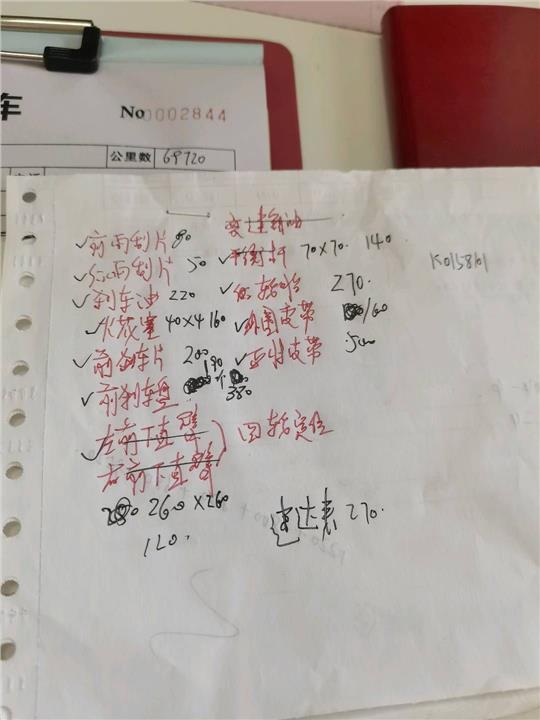 车
No 0002844
公里数 69720
变速箱油
✓前雨刮片 80
✓平衡杆 70×70. 140
K0158101
✓后雨刮片 50
270.
✓刹车油 220
✓外围皮带 /60
✓火花塞 40×4 160
✓正时皮带
✓前刹车片 200
190
✓前刹车盘 380
✓左前下直臂 四轮定位
右前下直臂
260×260
120.
速达表 270.